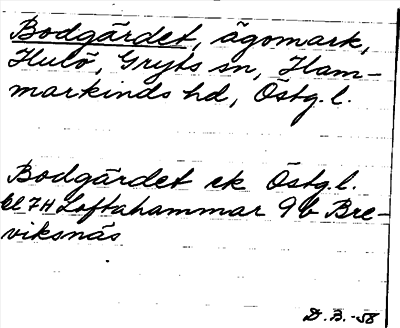 Bodgärdet, ägomark,
Hulö, Gryts sn, Ham-
markinds hd, Östg. l.
Bodgärdet ek Östg. l.
bl 7H Loftahammar 9b Bre-
viksnäs
D. B. -58